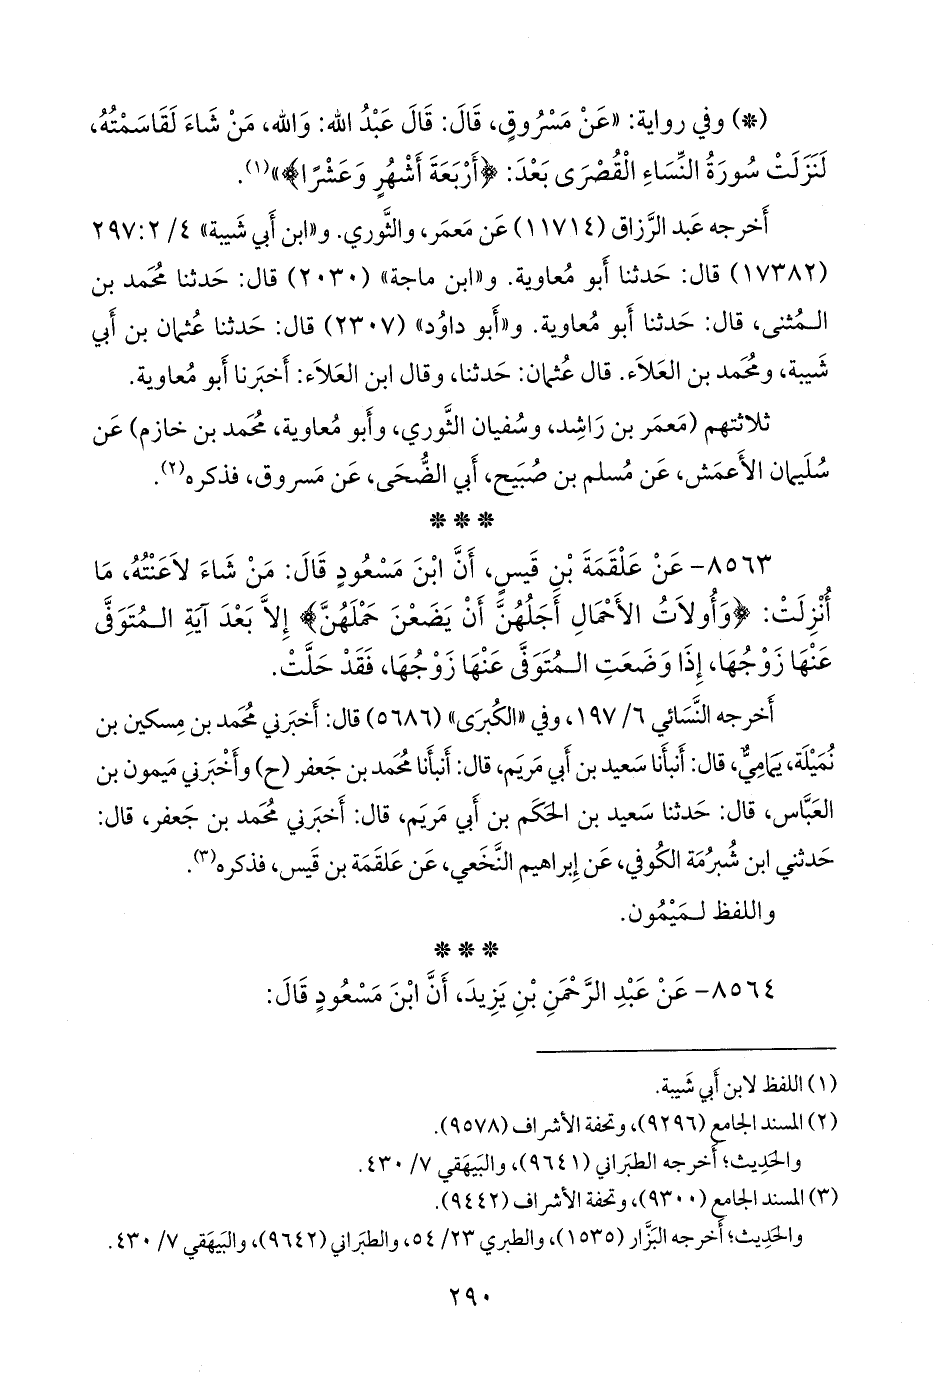 (*) وفي رواية: «عَنْ مَسْرُوقٍ، قَالَ: قَالَ عَبْدُ الله: وَالله، مَنْ شَاءَ لَقَاسَمْتُهُ،
لَنَزَلَتْ سُورَةُ النِّسَاءِ الْقُصْرَى بَعْدَ: ﴿أَرْبَعَةَ أَشْهُرٍ وَعَشْرًا﴾»(١).
أَخرجه عَبد الرَّزاق (١١٧١٤) عَن مَعمَر، والثَّوري. و«ابن أَبي شَيبة» ٤/ ٢٩٧:٢
(١٧٣٨٢) قال: حَدثنا أَبو مُعاوية. و«ابن ماجة» (٢٠٣٠) قال: حَدثنا مُحمد بن
الـمُثنى، قال: حَدثنا أَبو مُعاوية. و«أَبو داوُد» (٢٣٠٧) قال: حَدثنا عُثمان بن أَبي
شَيبة، ومُحمد بن العَلاَء. قال عُثمان: حَدثنا، وقال ابن العَلاَء: أَخبَرنا أَبو مُعاوية.
ثلاثتهم (مَعمَر بن رَاشِد، وسُفيان الثَّوري، وأَبو مُعاوية، مُحمد بن خازم) عَن
سُلَيمان الأَعمَش، عَن مُسلم بن صُبَيح، أَبي الضُّحَى، عَن مَسروق، فذكره(٢).
* * *
٨٥٦٣- عَنْ عَلْقَمَةَ بْنِ قَيسٍ، أَنَّ ابْنَ مَسْعُودٍ قَالَ: مَنْ شَاءَ لاَعَنْتُهُ، مَا
أُنْزِلَتْ: ﴿وَأُولاَتُ الأَحْمَالِ أَجَلُهُنَّ أَنْ يَضَعْنَ حَمْلَهُنَّ﴾ إِلاَّ بَعْدَ آيَةِ الـمُتَوَفَّى
عَنْهَا زَوْجُهَا، إِذَا وَضَعَتِ الـمُتَوَفَّى عَنْهَا زَوْجُهَا، فَقَدْ حَلَّتْ.
أَخرجه النَّسَائي ٦/ ١٩٧، وفي «الكُبرَى» (٥٦٨٦) قال: أَخبَرني مُحمد بن مِسكين بن
نُمَيْلَة، يَمامِيٌّ، قال: أَنبأَنا سَعيد بن أَبي مَريَم، قال: أَنبأَنا مُحمد بن جَعفر (ح) وأَخبَرني مَيمون بن
العَبَّاس، قال: حَدثنا سَعيد بن الحَكَم بن أَبي مَريَم، قال: أَخبَرني مُحمد بن جَعفر، قال:
حَدثني ابن شُبرُمَة الكُوفي، عَن إِبراهيم النَّخَعي، عَن عَلقَمَة بن قَيس، فذكره(٣).
واللفظ لـمَيْمُون.
* * *
٨٥٦٤- عَنْ عَبْدِ الرَّحْمَنِ بْنِ يَزِيدَ، أَنَّ ابْنَ مَسْعُودٍ قَالَ:
(١) اللفظ لابن أَبي شَيبة.
(٢) المسند الجامع (٩٢٩٦)، وتحفة الأشراف (٩٥٧٨).
والحَدِيث؛ أَخرجه الطبَراني (٩٦٤١)، والبَيهَقي ٧/ ٤٣٠.
(٣) المسند الجامع (٩٣٠٠)، وتحفة الأشراف (٩٤٤٢).
والحَدِيث؛ أَخرجه البَزَّار (١٥٣٥)، والطبري ٢٣/ ٥٤، والطبَراني (٩٦٤٢)، والبَيهَقي ٧/ ٤٣٠.
٢٩٠